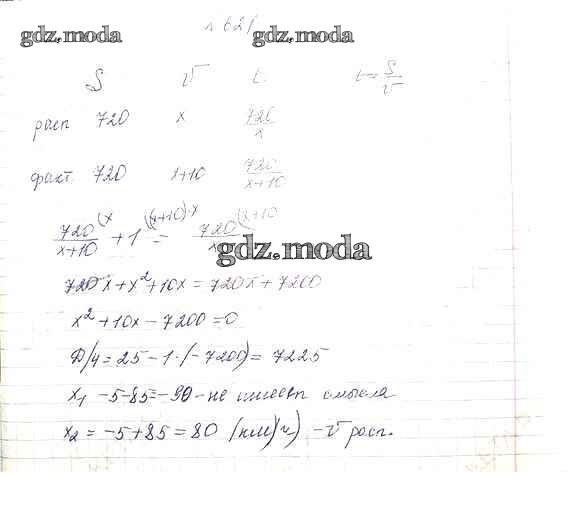 № 621
gdz.moda gdz.moda
S V t t=S/V
расп 720 x 720/x
факт. 720 x+10 720/(x+10)
720/(x+10) (x + 1 ((x+10)·x = 720/x (x+10
gdz.moda
720x+x²+10x=720x+7200
x²+10x-7200=0
D/4=25-1·(-7200)=7225
x₁ -5-85=-90-не имеет смысла
x₂=-5+85=80 (км/ч) -V расп.